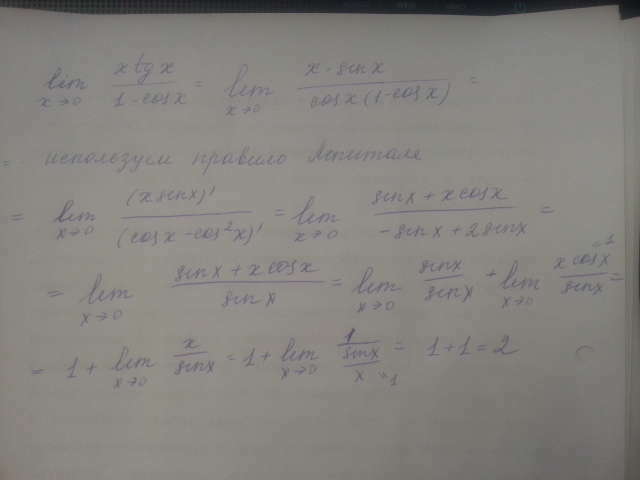 lim x→0 x tg x / 1 - cos x = lim x→0 x · sin x / cos x (1 - cos x) =
= используем правило Лопиталя
= lim x→0 (x sin x)' / (cos x - cos²x)' = lim x→0 sin x + x cos x / - sin x + 2 sin x =
= lim x→0 sin x + x cos x / sin x = lim x→0 sin x / sin x + lim x→0 x cos x / sin x =
= 1 + lim x→0 x / sin x = 1 + lim x→0 1 / sin x / x = 1 + 1 = 2